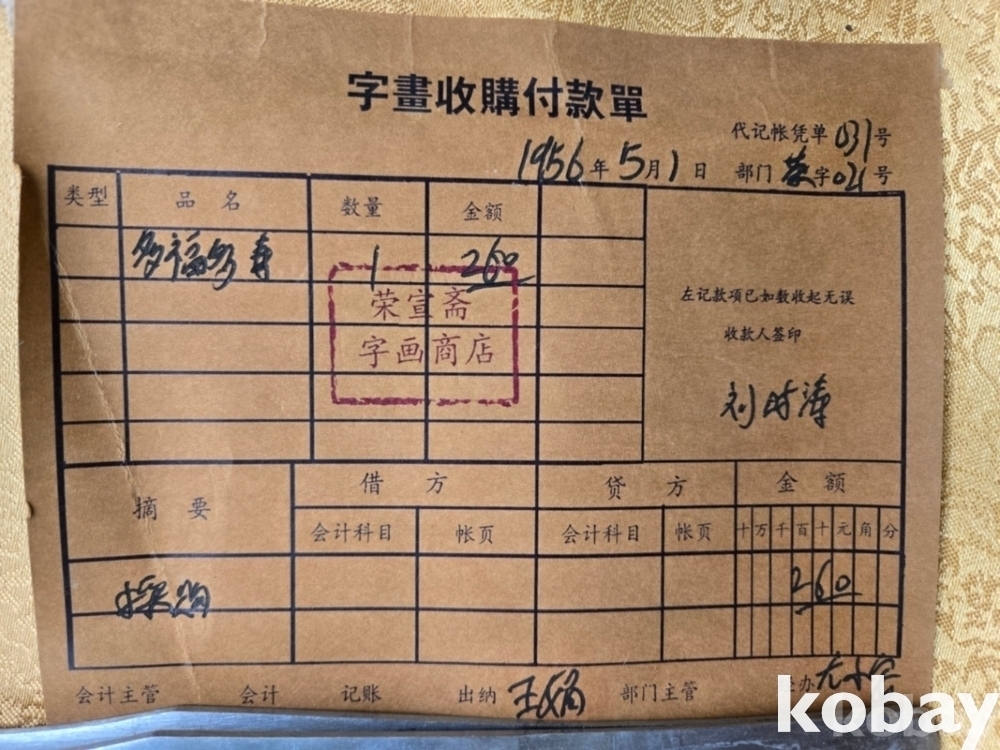 字畫收購付款單
代记帐凭单 031号
1956年5月1日 部门 荣字021号
类型 品名 数量 金额
多福多寿 1 260
荣宣斋
字画商店
左记款项已如数收起无误
收款人签印
刘时涛
摘要 借方 贷方 金额
会计科目 帐页 会计科目 帐页 十万千百十元角分
采购 260
会计主管 会计 记账 出纳 部门主管
kobay